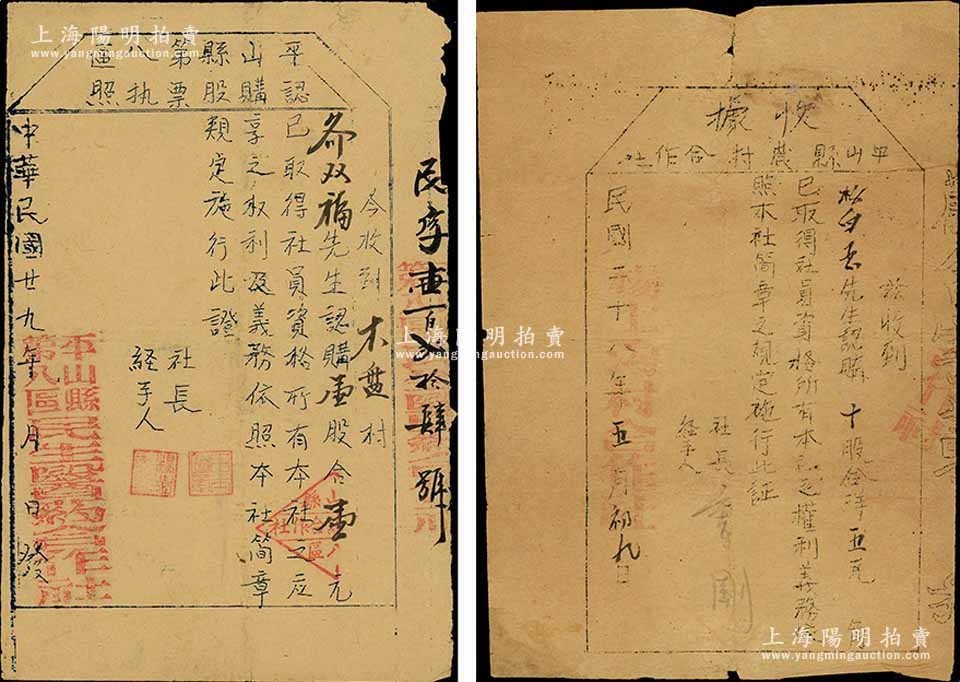 上海陽明拍賣
www.yangmingauction.com
平山縣第八區
認購股票执照
民字壹百父拾肆號
今收到木盘村
双福先生認購壹股合壹元
已取得社員資格所有本社之应
享之权利及義務依照本社简章
規定施行此證
社長
経手人
中華民國廿九年 月 日發
平山縣
第八區民生醫药合作社
上海陽明拍賣
www.yangmingauction.com
收據
平山縣農村合作社
茲收到
先生認購十股合洋五元
已取得社員資格所有本社之權利義務
照本社简章之規定施行此証
社長
経手人
民國二十八年五月初九日
上海陽明拍賣
www.yangmingauction.com